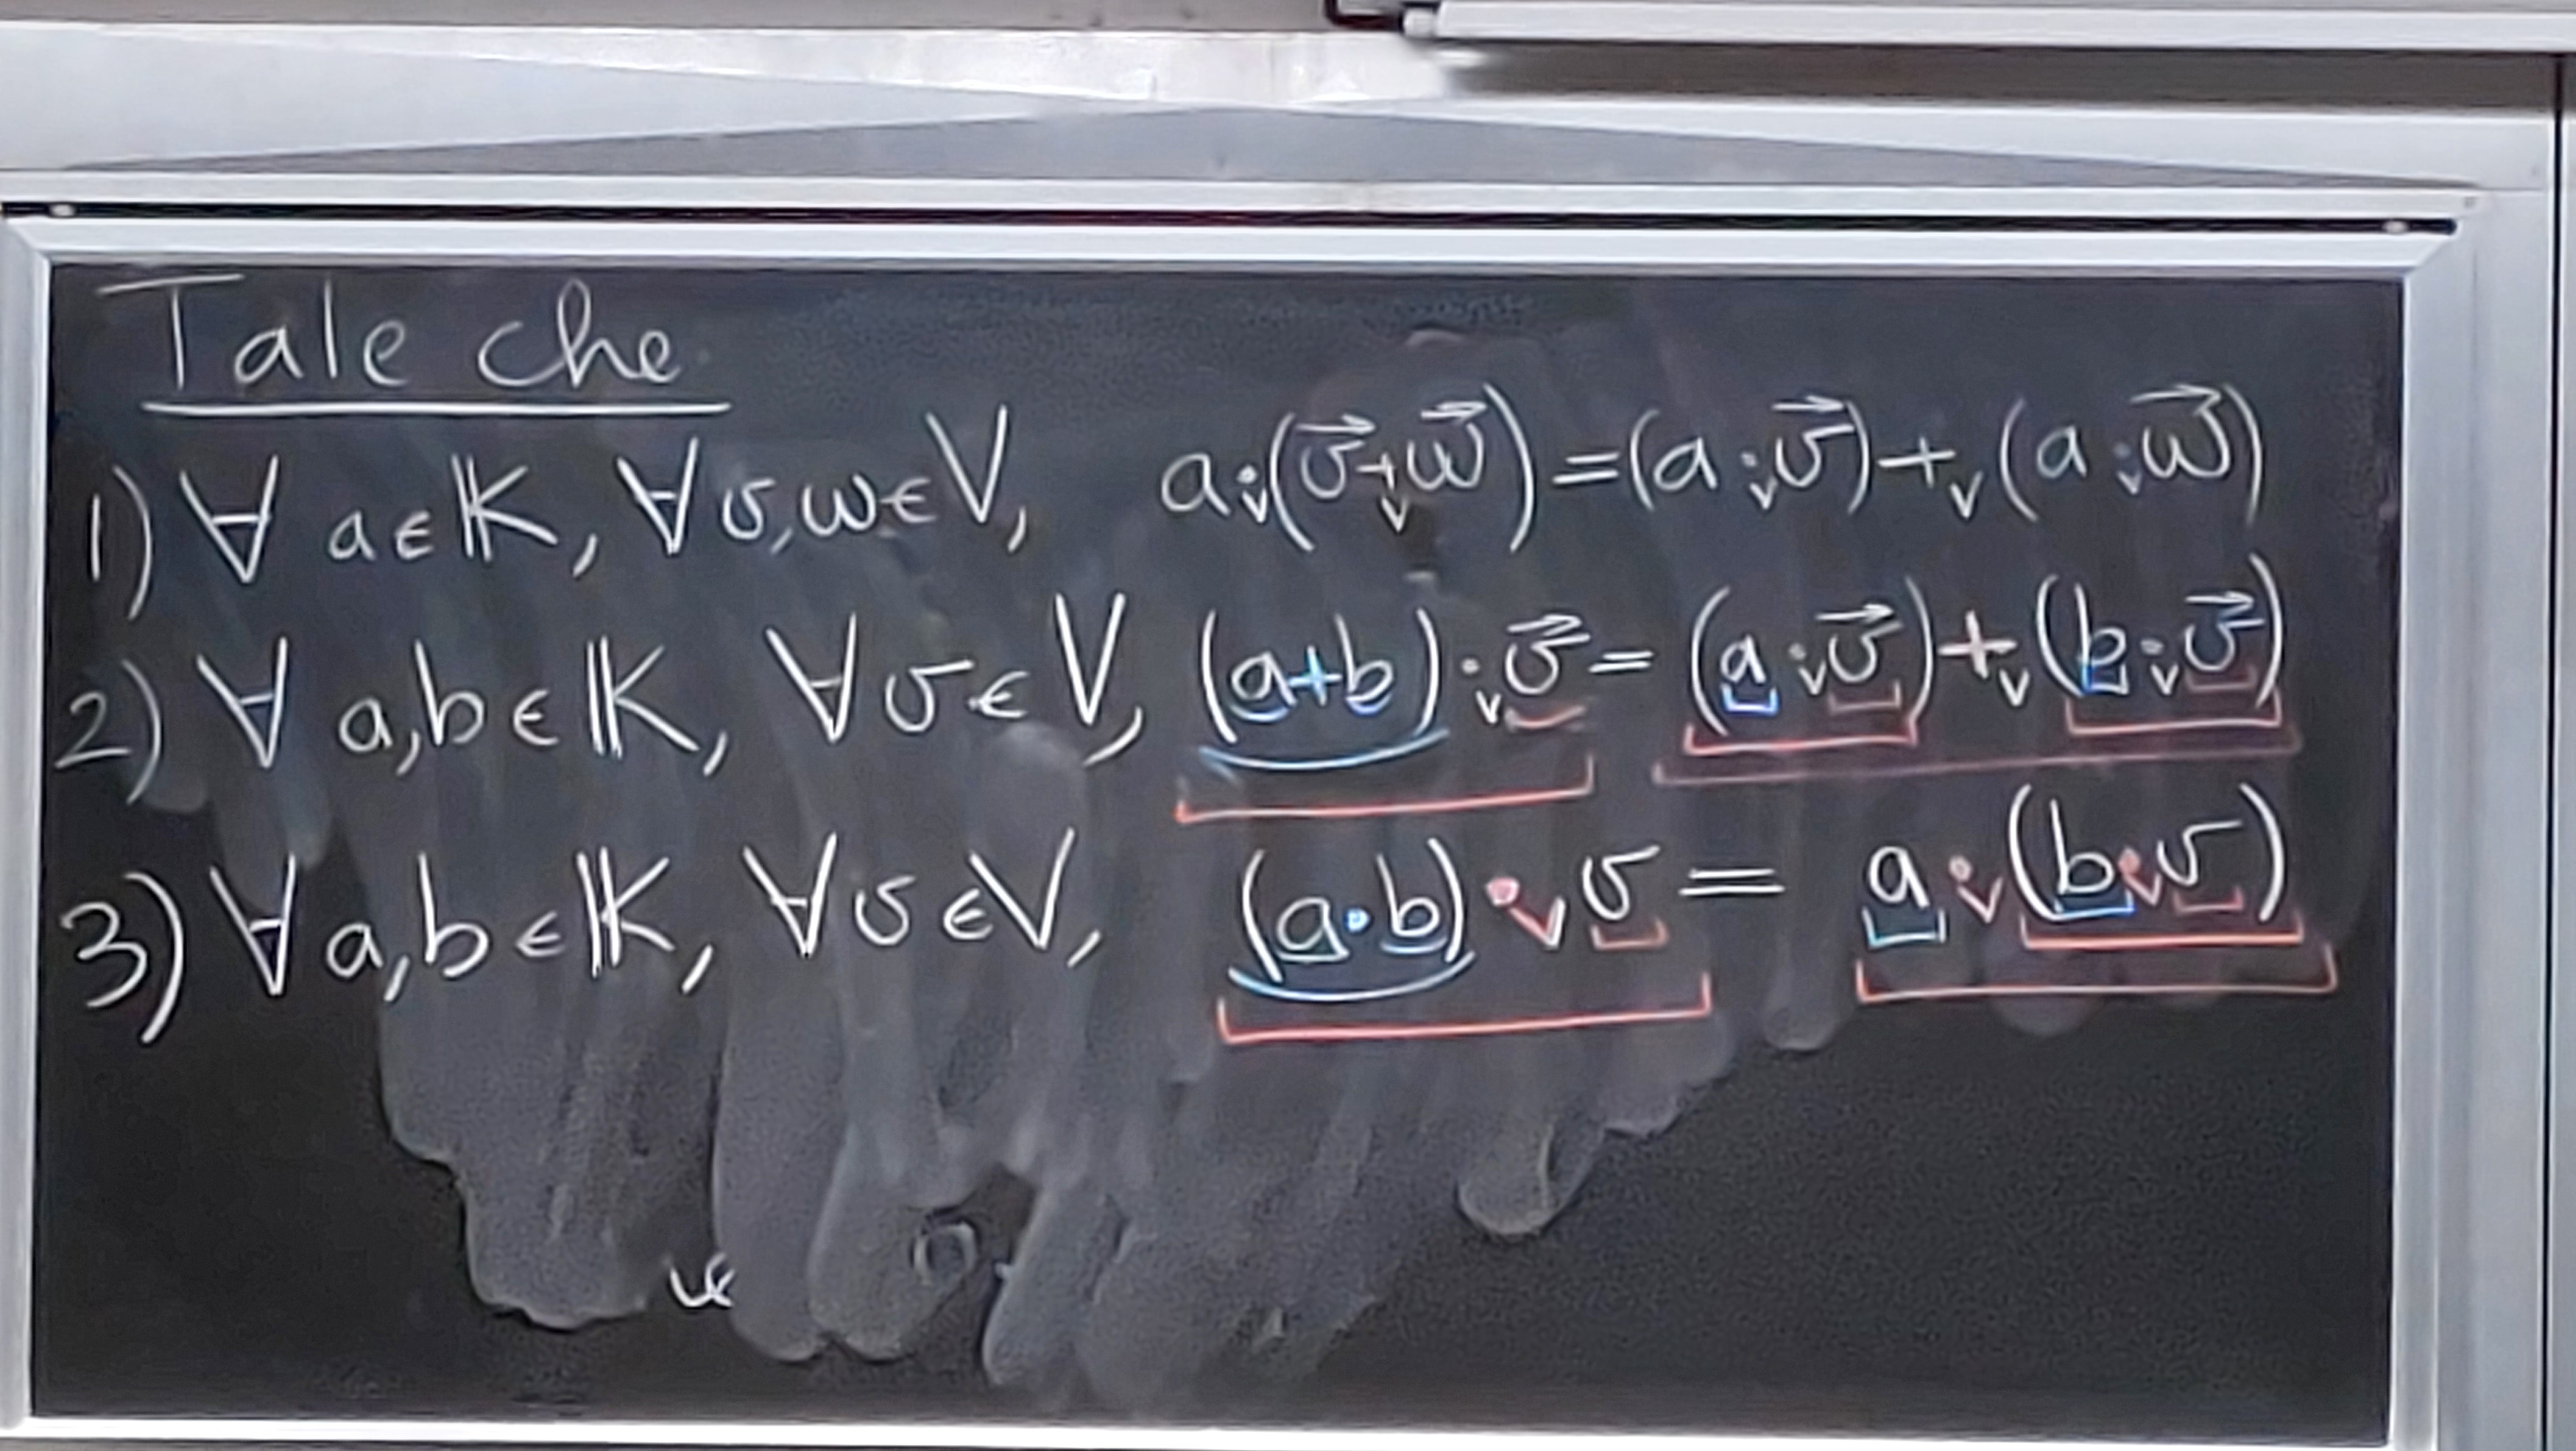 Tale che
1) ∀ a∈𝕂, ∀ v,w∈V, a·ᵥ(v⃗+ᵥw⃗)=(a·ᵥv⃗)+ᵥ(a·ᵥw⃗)
2) ∀ a,b∈𝕂, ∀ v∈V, (a+b)·ᵥv⃗=(a·ᵥv⃗)+ᵥ(b·ᵥv⃗)
3) ∀ a,b∈𝕂, ∀ v∈V, (a·b)·ᵥv = a·ᵥ(b·ᵥv)